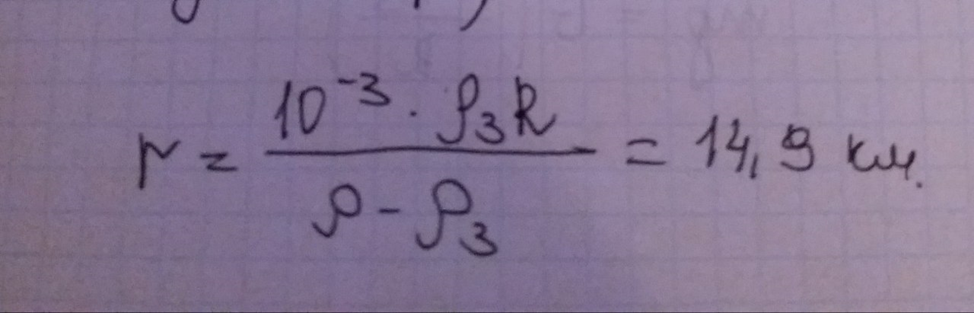 r = \frac{10^{-3} \cdot ρ_3 R}{ρ - ρ_3} = 14,9 км.